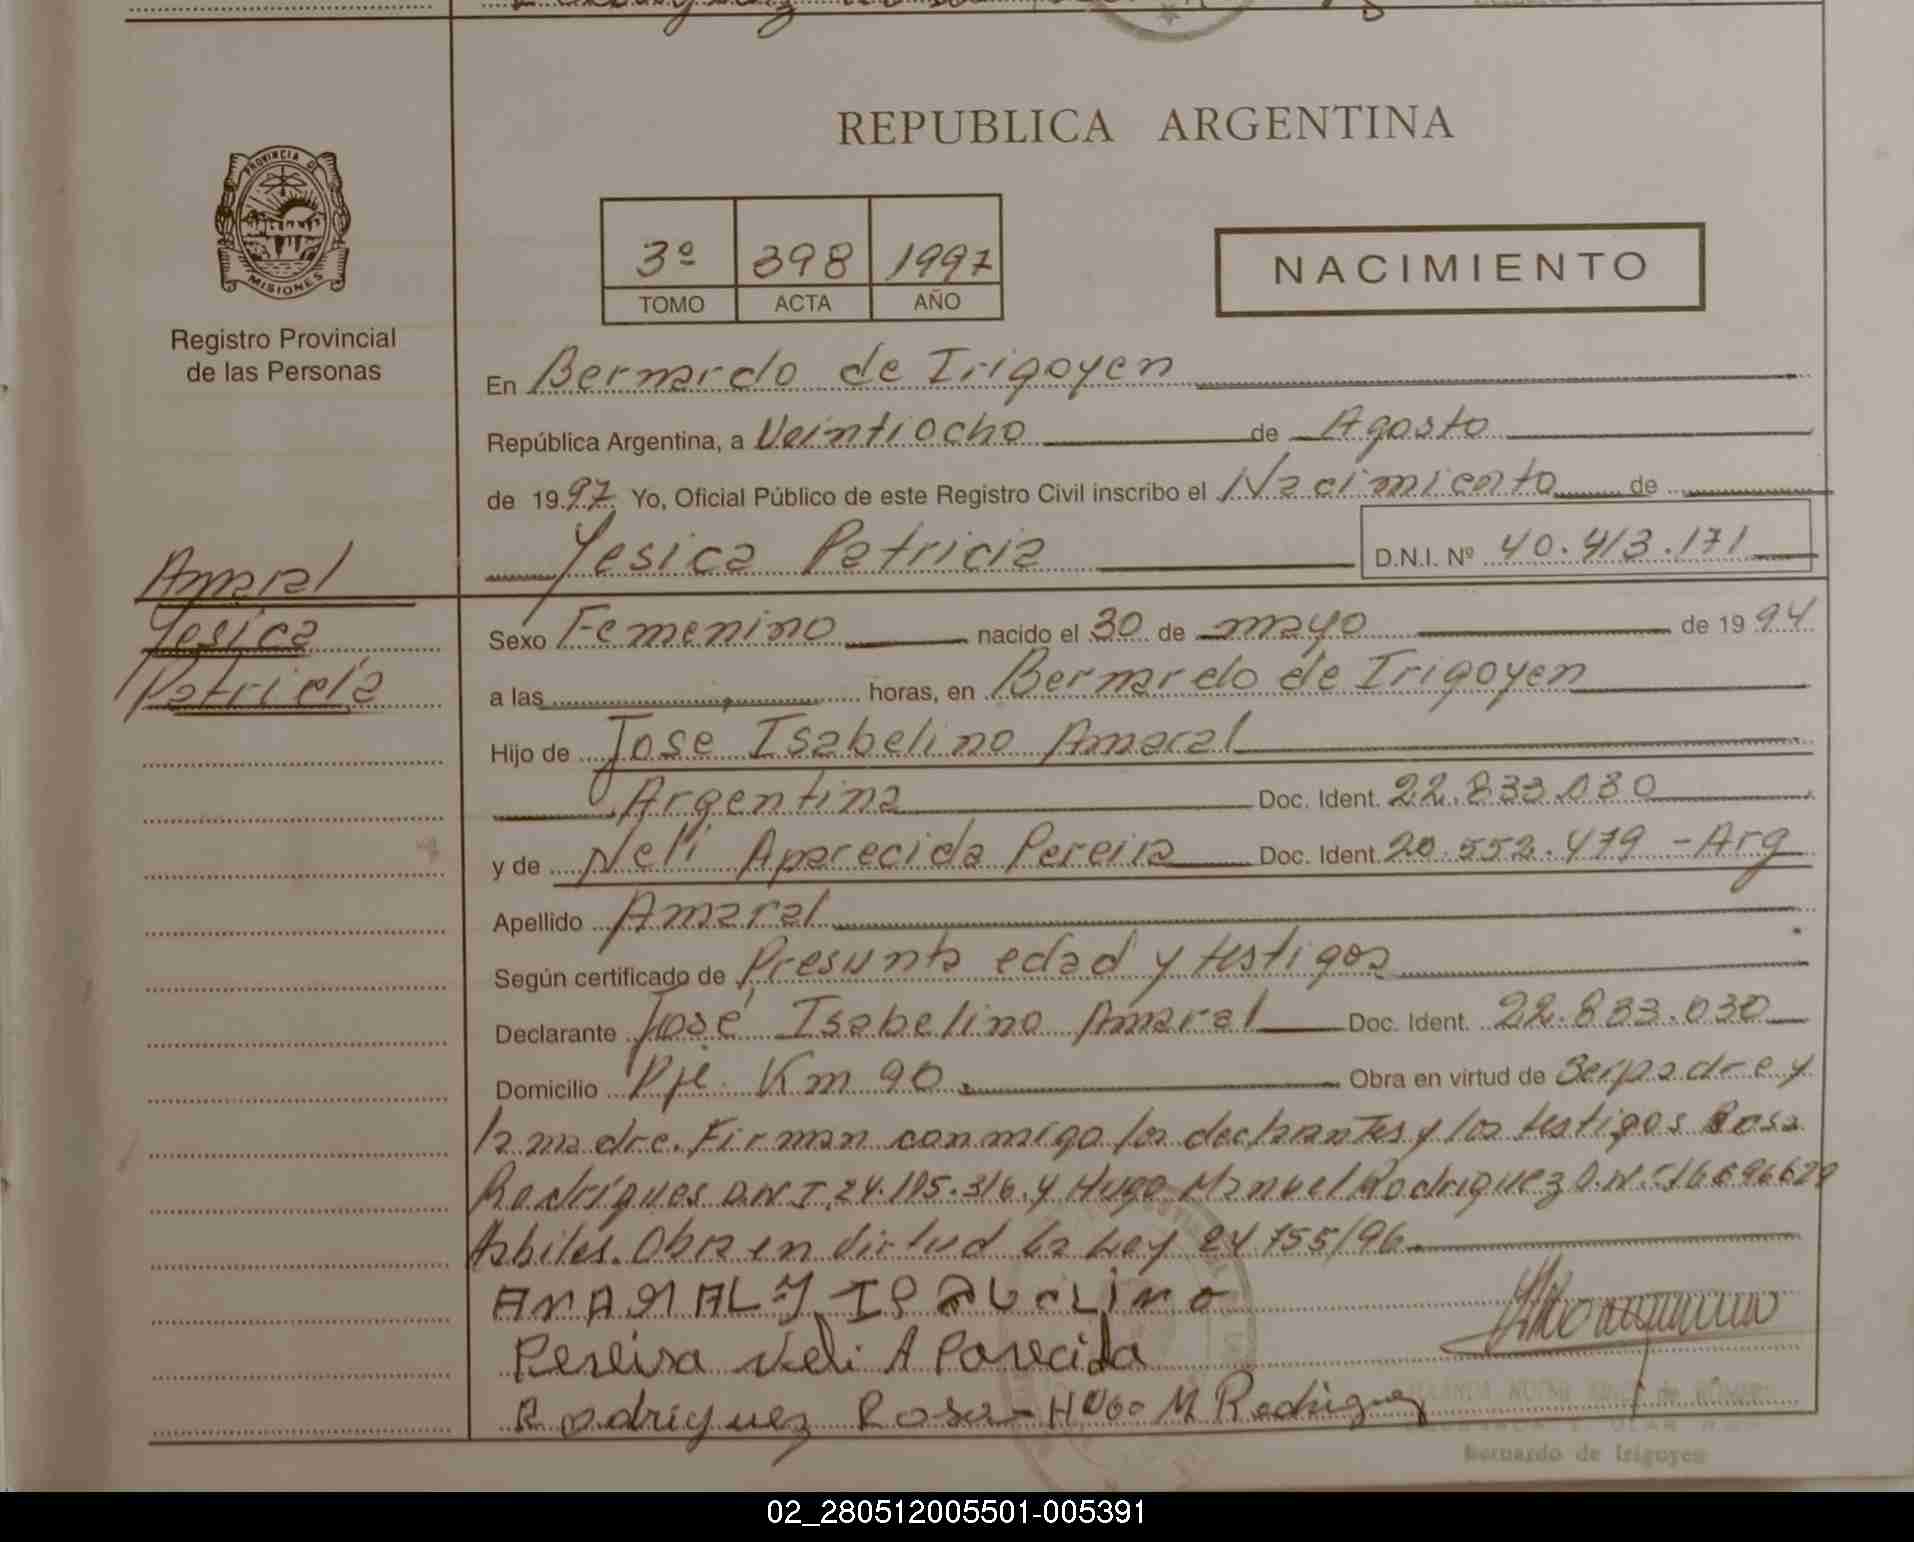 REPUBLICA ARGENTINA
PROVINCIA DE
MISIONES
Registro Provincial
de las Personas
3º 398 1997
TOMO ACTA AÑO
NACIMIENTO
En Bernardo de Irigoyen
República Argentina, a Veintiocho de Agosto
de 1997 Yo, Oficial Público de este Registro Civil inscribo el Nacimiento de
Yesica Patricia D.N.I. Nº 40.413.171
Amaral
Yesica
Patricia
Sexo Femenino nacido el 30 de mayo de 1994
a las horas, en Bernardo de Irigoyen
Hijo de Jose Isabelino Amaral
Argentina Doc. Ident. 22.833.030
y de Neli Aparecida Pereira Doc. Ident. 20.552.479 - Arg
Apellido Amaral
Según certificado de Presunta edad y testigos
Declarante José Isabelino Amaral Doc. Ident. 22.833.030
Domicilio Pje. Km 90 Obra en virtud de Ser padre y
la madre. Firman conmigo los declarantes y los testigos Rosa
Rodrígues D.N.I. 24.195.316. y Hugo Manuel Rodriguez D.N.I 16696629
Habiles. Obra en virtud la Ley 24755/96.
Pereira Neli Aparecida
Rodriguez Rosa - Hugo M Rodriguez
Bernardo de Irigoyen
02_280512005501-005391